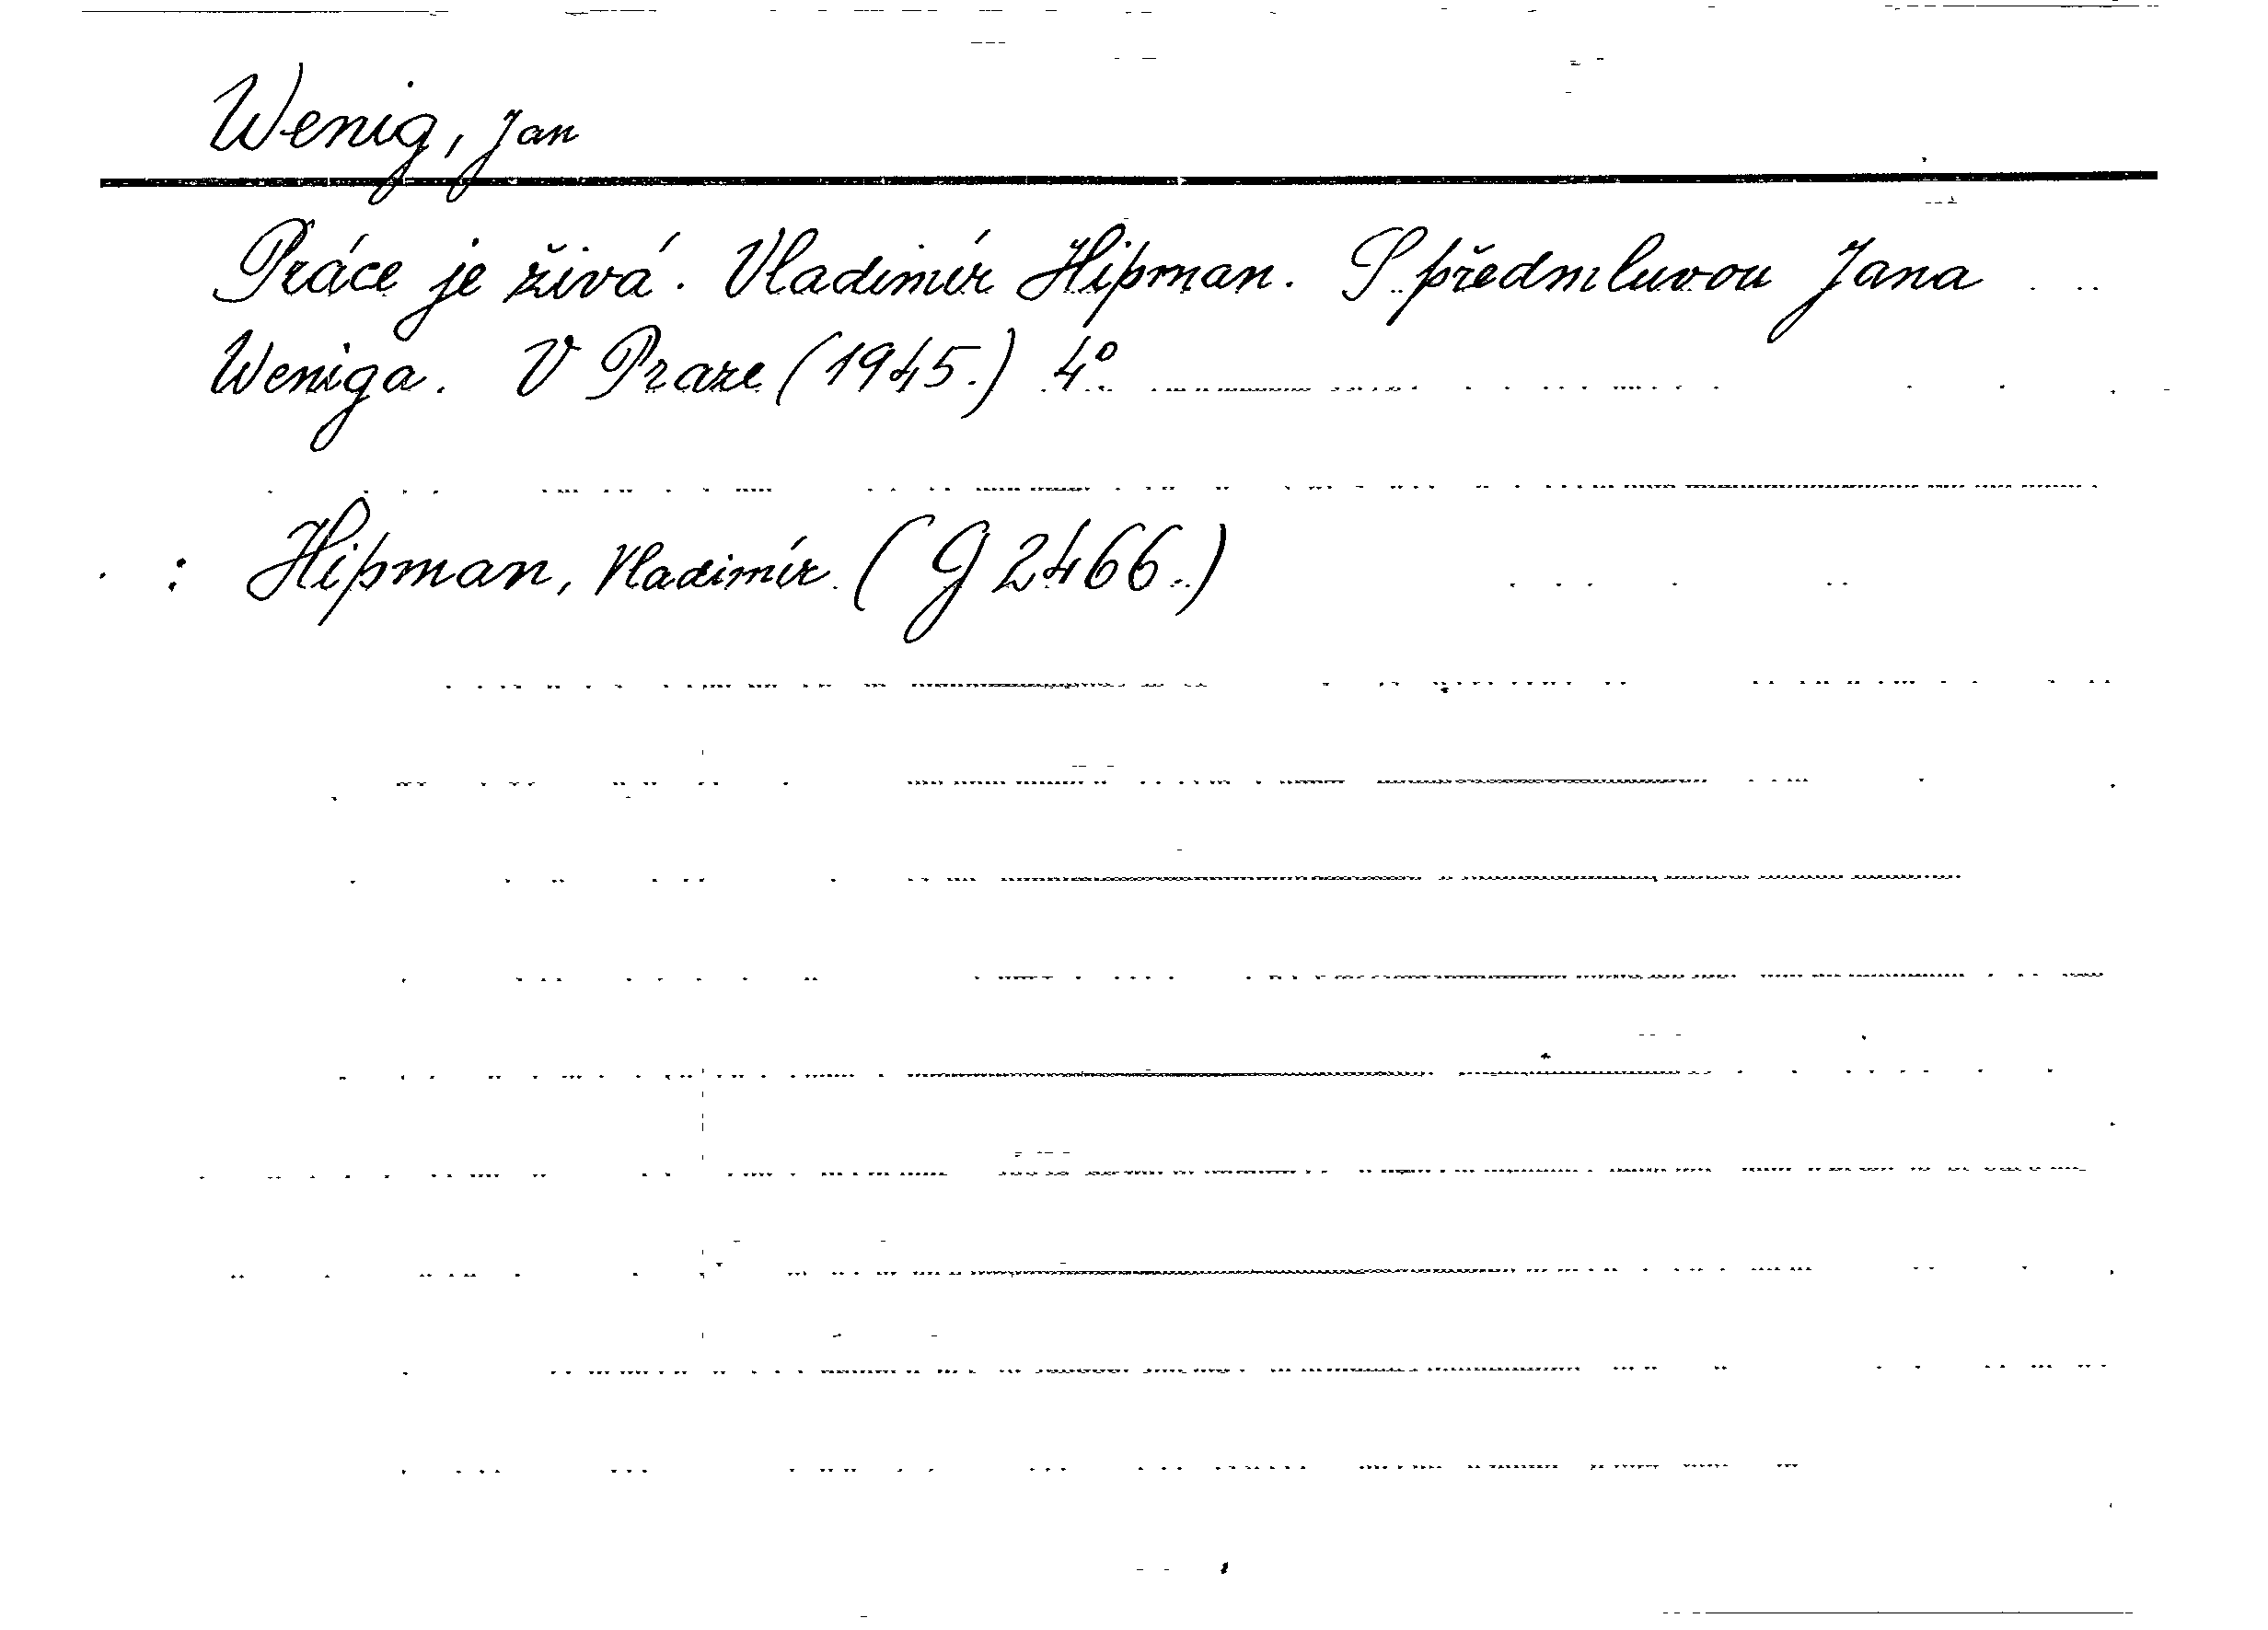 Wenig, Jan
Práce je živá. Vladimír Hipman. S předmluvou Jana
Weniga. V Praze (1945.) 4°
: Hipman, Vladimír. (G 2466.)